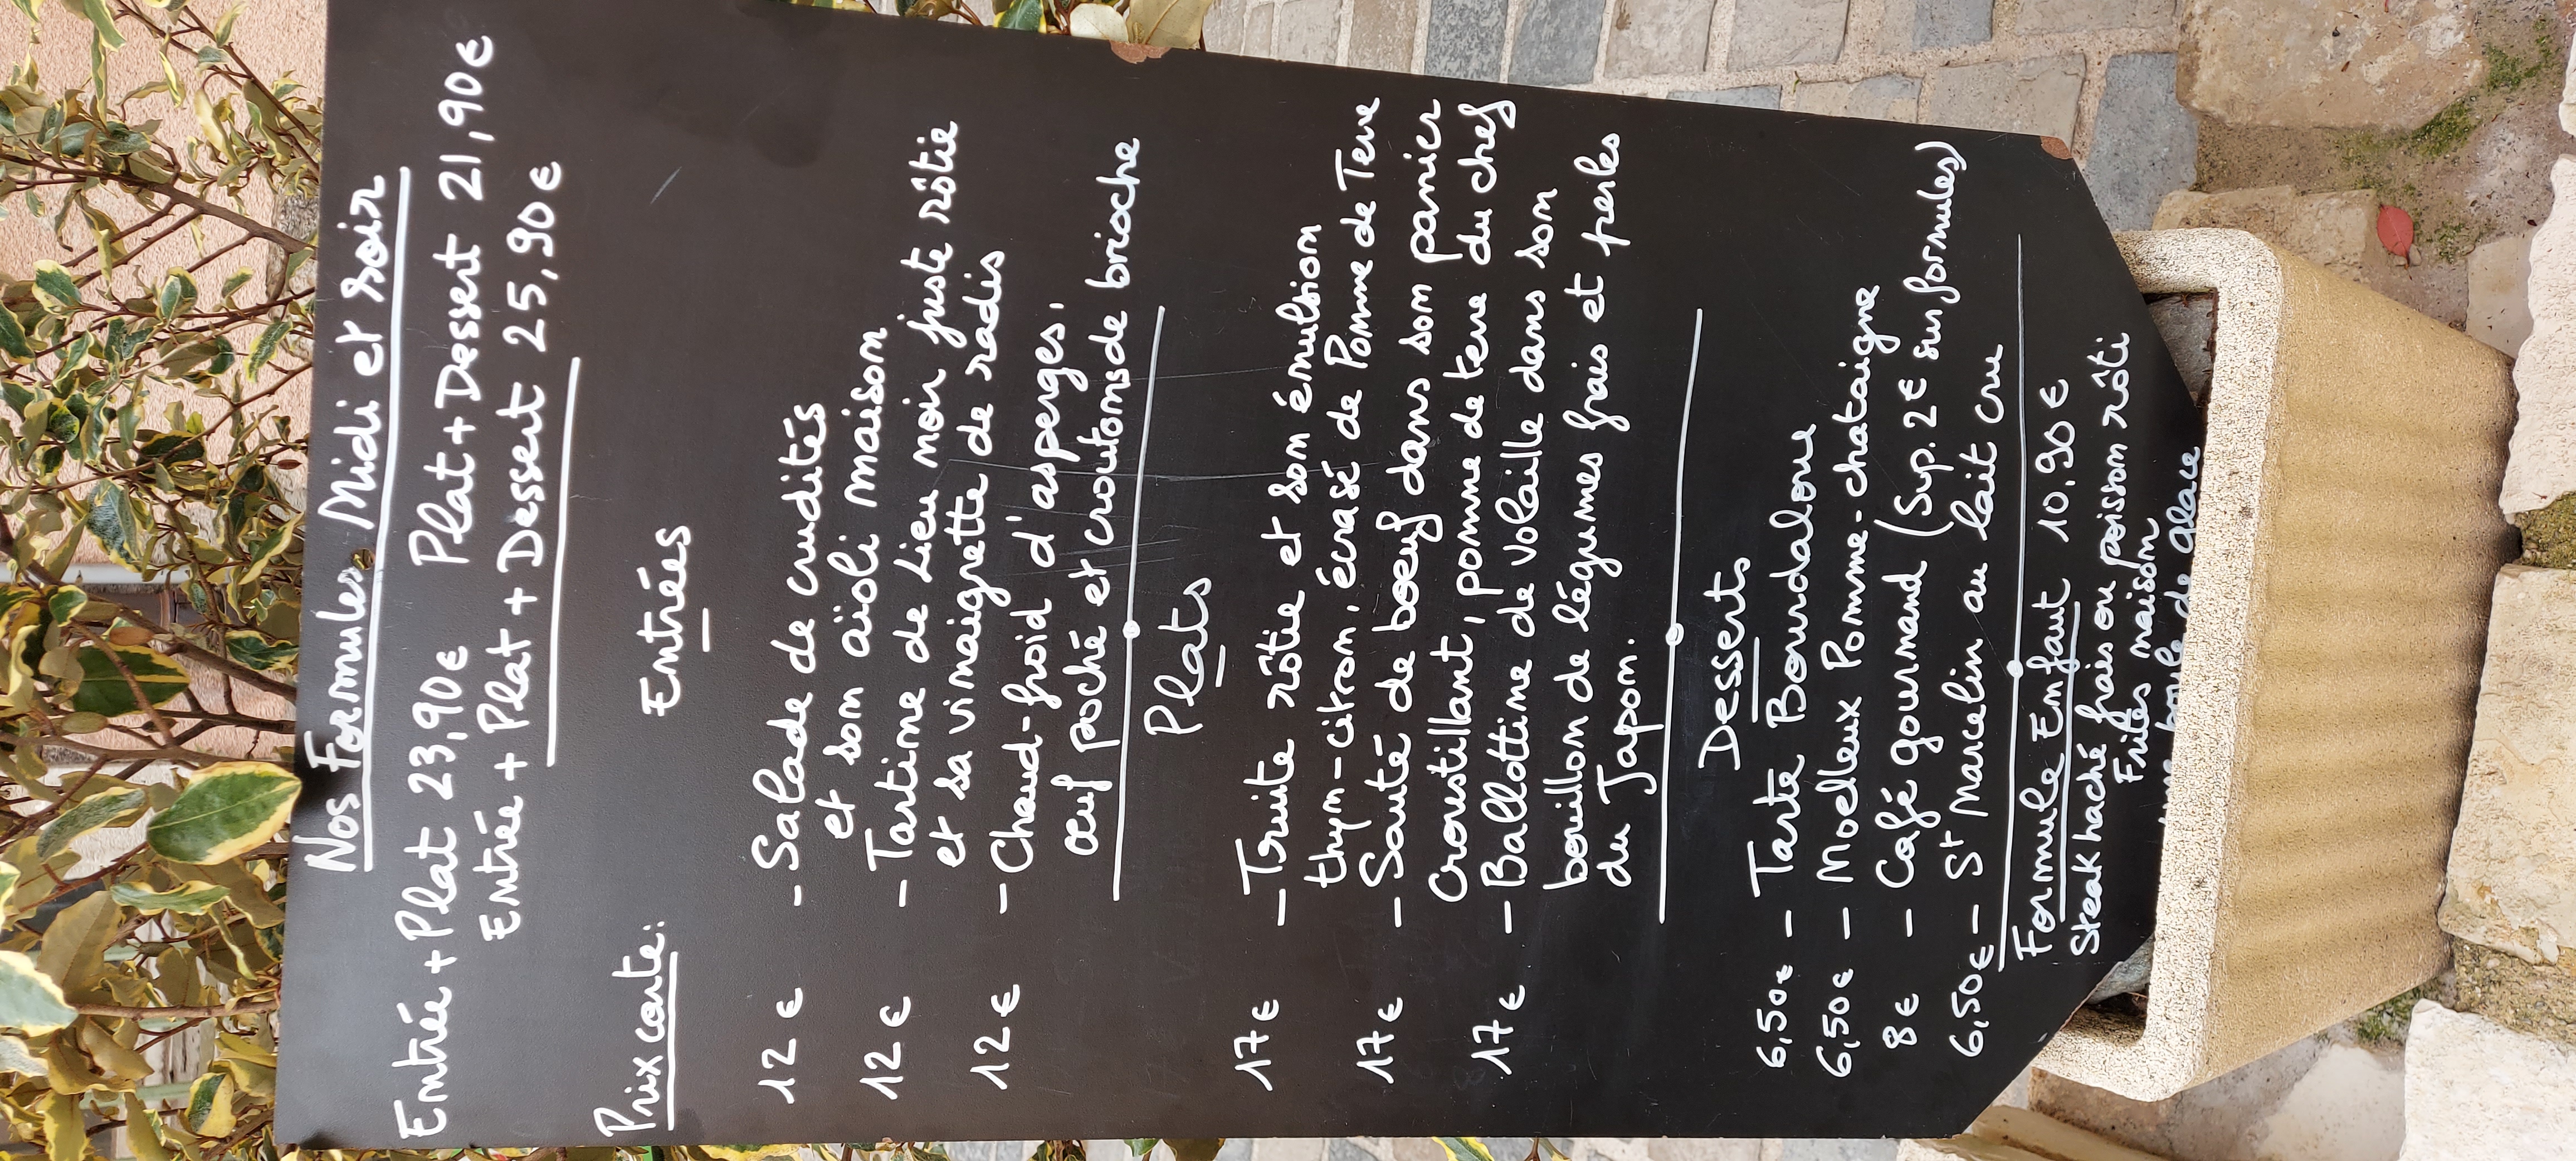 Nos Formules Midi et soir
Entrée + Plat 23,90€ Plat + Dessert 21,90€
Entrée + Plat + Dessert 25,90€
Prix carte:
Entrées
12€ - Salade de crudités
et son aïoli maison
12€ - Tartine de Lieu noir juste rôtie
et sa vinaigrette de radis
12€ - Chaud-froid d'asperges,
œuf poché et croutons de brioche
Plats
17€ - Truite rôtie et son émulsion
thym-citron, écrasé de Pomme de Terre
17€ - Sauté de boeuf dans son panier
Croustillant, pomme de terre du chef
17€ - Ballottine de volaille dans son
bouillon de légumes frais et perles
du Japon.
Desserts
6,50€ - Tarte Bourdaloue
6,50€ - Moelleux Pomme-chataigne
8€ - Café gourmand (Sup. 2€ sur formules)
6,50€ - St Marcelin au lait cru
Formule Enfant 10,90€
Steak haché frais ou poisson rôti
Frites maison
une boule de glace